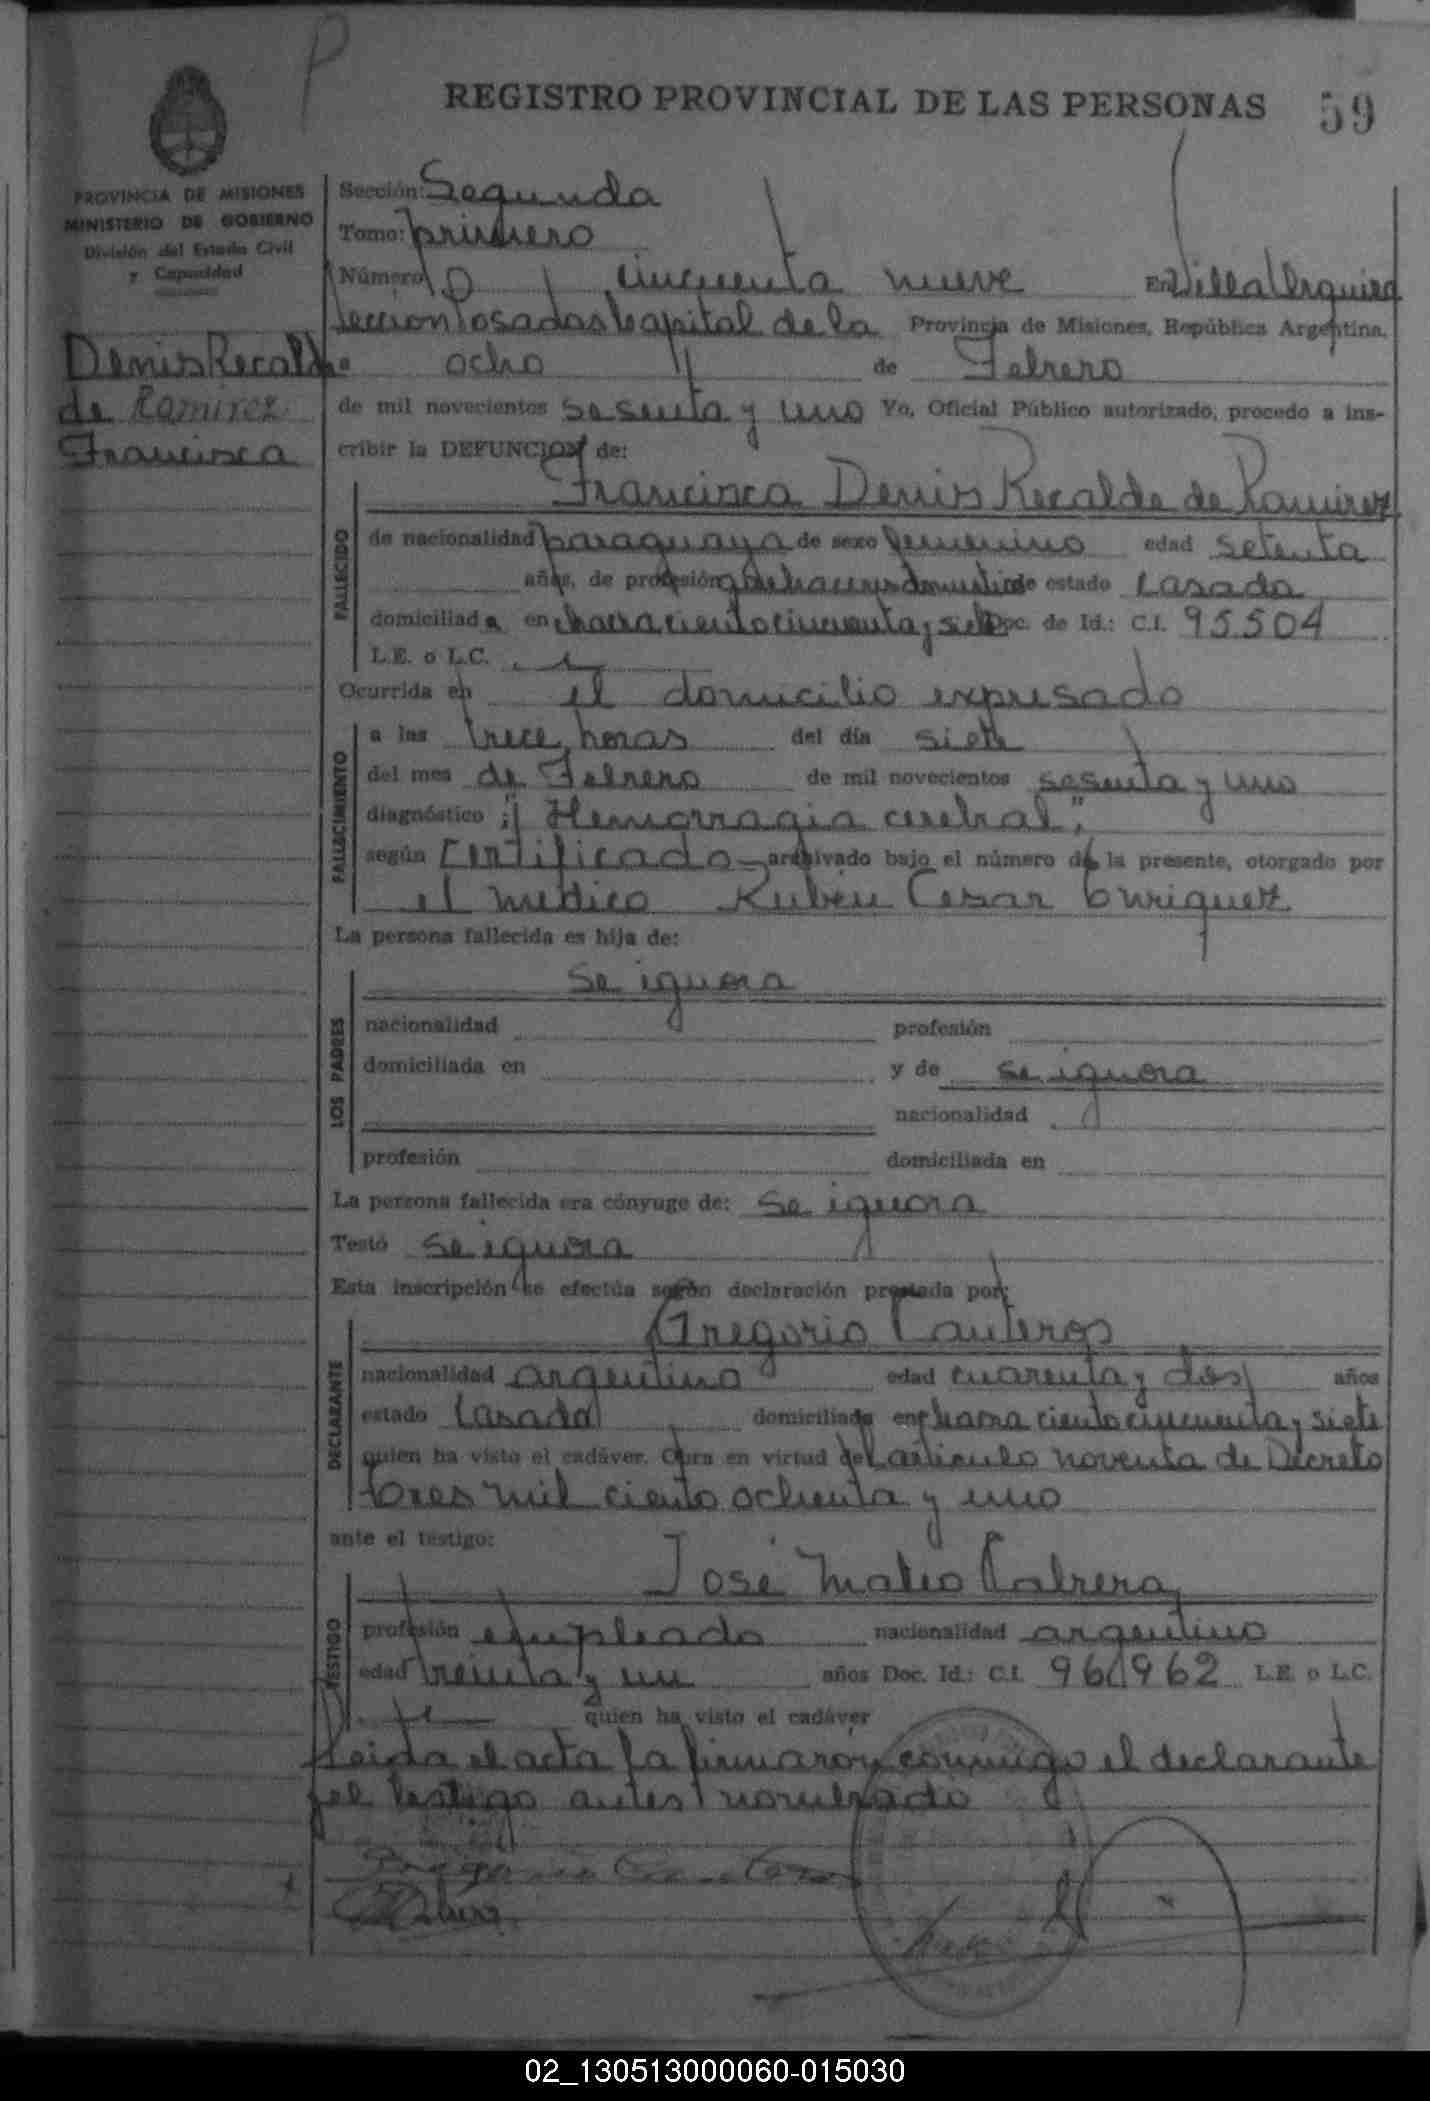 P
REGISTRO PROVINCIAL DE LAS PERSONAS 59
PROVINCIA DE MISIONES
MINISTERIO DE GOBIERNO
División del Estado Civil
y Capacidad
Denis Recalde
de Ramirez
Francisca
Sección: Segunda
Tomo: primero
Número cincuenta nueve En Villa Urquiza
Seccion Posadas Capital de la Provincia de Misiones, República Argentina,
a ocho de Febrero
de mil novecientos sesenta y uno Yo, Oficial Público autorizado, procedo a ins-
cribir la DEFUNCION de:
Francisca Denis Recalde de Ramirez
FALLECIDO
de nacionalidad paraguaya de sexo femenino edad setenta
años, de profesión quehaceres domesticos de estado casada
domiciliada en chacra ciento cincuenta y siete Doc. de Id.: C.I. 95504
L.E. o L.C.
Ocurrida en el domicilio expresado
FALLECIMIENTO
a las trece horas del día siete
del mes de Febrero de mil novecientos sesenta y uno
diagnóstico "Hemorragia cerebral",
según Certificado archivado bajo el número de la presente, otorgado por
el medico Rubén Cesar Enriquez
La persona fallecida es hija de:
se ignora
LOS PADRES
nacionalidad profesión
domiciliada en y de se ignora
nacionalidad
profesión domiciliada en
La persona fallecida era cónyuge de: se ignora
Testó se ignora
Esta inscripción se efectúa según declaración prestada por:
Gregorio Canteros
DECLARANTE
nacionalidad argentino edad cuarenta y dos años
estado casado domiciliado en chacra ciento cincuenta y siete
quien ha visto el cadáver. Obra en virtud del articulo noventa de Decreto
tres mil ciento ochenta y uno
ante el testigo:
José Mateo Cabrera
TESTIGO
profesión empleado nacionalidad argentino
edad treinta y un años Doc. Id.: C.I. 961962 L.E. o L.C.
quien ha visto el cadáver
Leida el acta la firmaron conmigo el declarante
y el testigo antes nombrado
Gregorio Canteros
02_130513000060-015030